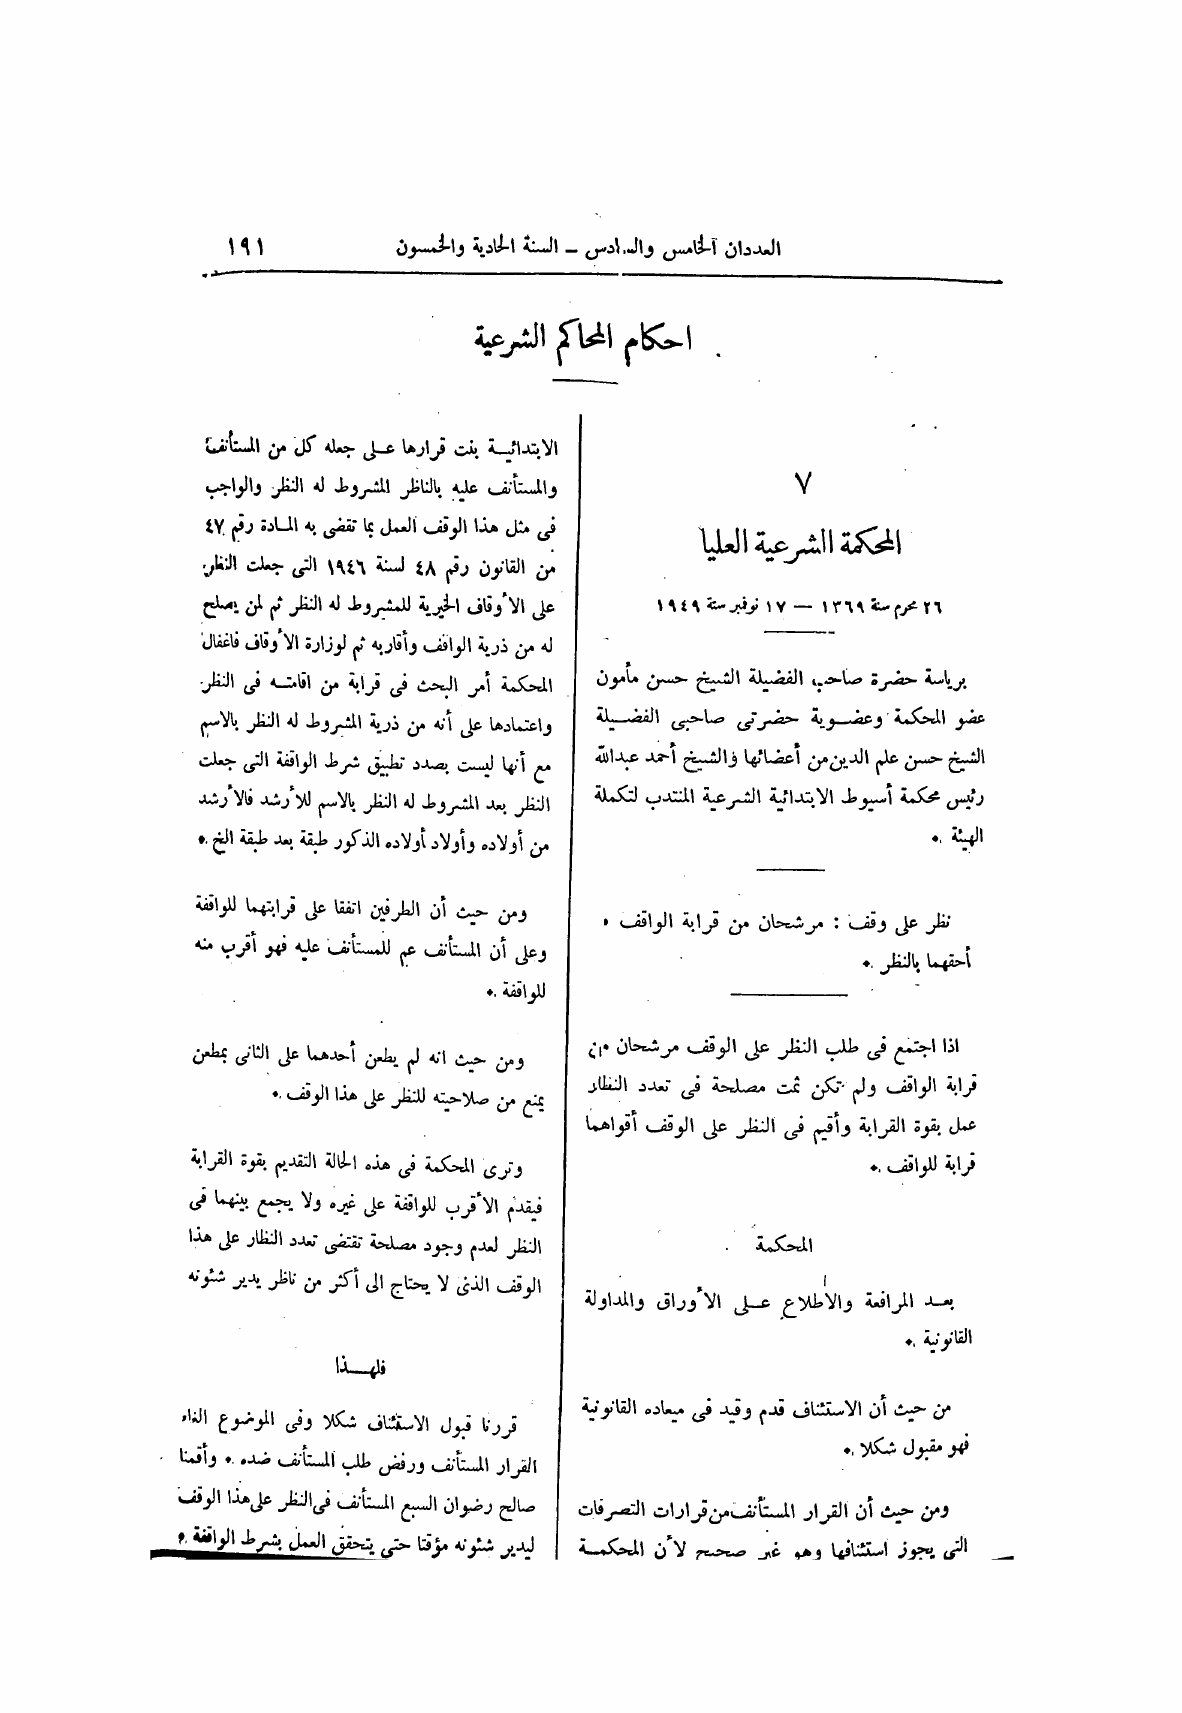 العددان الخامس والسادس – السنة الحادية والخمسون ١٩١
احكام المحاكم الشرعية
٧
المحكمة الشرعية العليا
٢٦ محرم سنة ١٣٦٩ – ١٧ نوفمبر سنة ١٩٤٩
برياسة حضرة صاحب الفضيلة الشيخ حسن مأمون
عضو المحكمة وعضوية حضرتى صاحبى الفضيلة
الشيخ حسن علم الدين من أعضائها والشيخ أحمد عبدالله
رئيس محكمة أسيوط الابتدائية الشرعية المنتدب لتكملة
الهيئة .
نظر على وقف : مرشحان من قرابة الواقف .
أحقهما بالنظر .
اذا اجتمع فى طلب النظر على الوقف مرشحان من
قرابة الواقف ولم تكن ثمت مصلحة فى تعدد النظار
عمل بقوة القرابة وأقيم فى النظر على الوقف أقواهما
قرابة للواقف .
المحكمة
بعد المرافعة والاطلاع على الأوراق والمداولة
القانونية .
من حيث أن الاستئناف قدم وقيد فى ميعاده القانونية
فهو مقبول شكلا .
ومن حيث أن القرار المستأنف من قرارات التصرفات
التى يجوز استئنافها وهو غير صحيح لأن المحكمة
الابتدائية بنت قرارها على جعله كل من المستأنف
والمستأنف عليه بالناظر المشروط له النظر والواجب
فى مثل هذا الوقف العمل بما تقضى به المادة رقم ٤٧
من القانون رقم ٤٨ لسنة ١٩٤٦ التى جعلت النظر
على الأوقاف الخيرية للمشروط له النظر ثم لمن يصلح
له من ذرية الواقف وأقاربه ثم لوزارة الأوقاف فاغفال
المحكمة أمر البحث فى قرابة من اقامته فى النظر
واعتمادها على أنه من ذرية المشروط له النظر بالاسم
مع أنها ليست بصدد تطبيق شرط الواقفة التى جعلت
النظر بعد المشروط له النظر بالاسم للأرشد فالأرشد
من أولاده وأولاد أولاده الذكور طبقة بعد طبقة الخ .
ومن حيث أن الطرفين اتفقا على قرابتهما للواقفة
وعلى أن المستأنف عم للمستأنف عليه فهو أقرب منه
للواقفة .
ومن حيث انه لم يطعن أحدهما على الثانى بمطعن
يمنع من صلاحيته للنظر على هذا الوقف .
وترى المحكمة فى هذه الحالة التقديم بقوة القرابة
فيقدم الأقرب للواقفة على غيره ولا يجمع بينهما فى
النظر لعدم وجود مصلحة تقتضى تعدد النظار على هذا
الوقف الذى لا يحتاج الى أكثر من ناظر يدير شئونه
فلهــذا
قررنا قبول الاستئناف شكلا وفى الموضوع الغاء
القرار المستأنف ورفض طلب المستأنف ضده . وأقمنا
صالح رضوان السبع المستأنف فى النظر على هذا الوقف
ليدير شئونه مؤقتا حتى يتحقق العمل بشرط الواقفة .